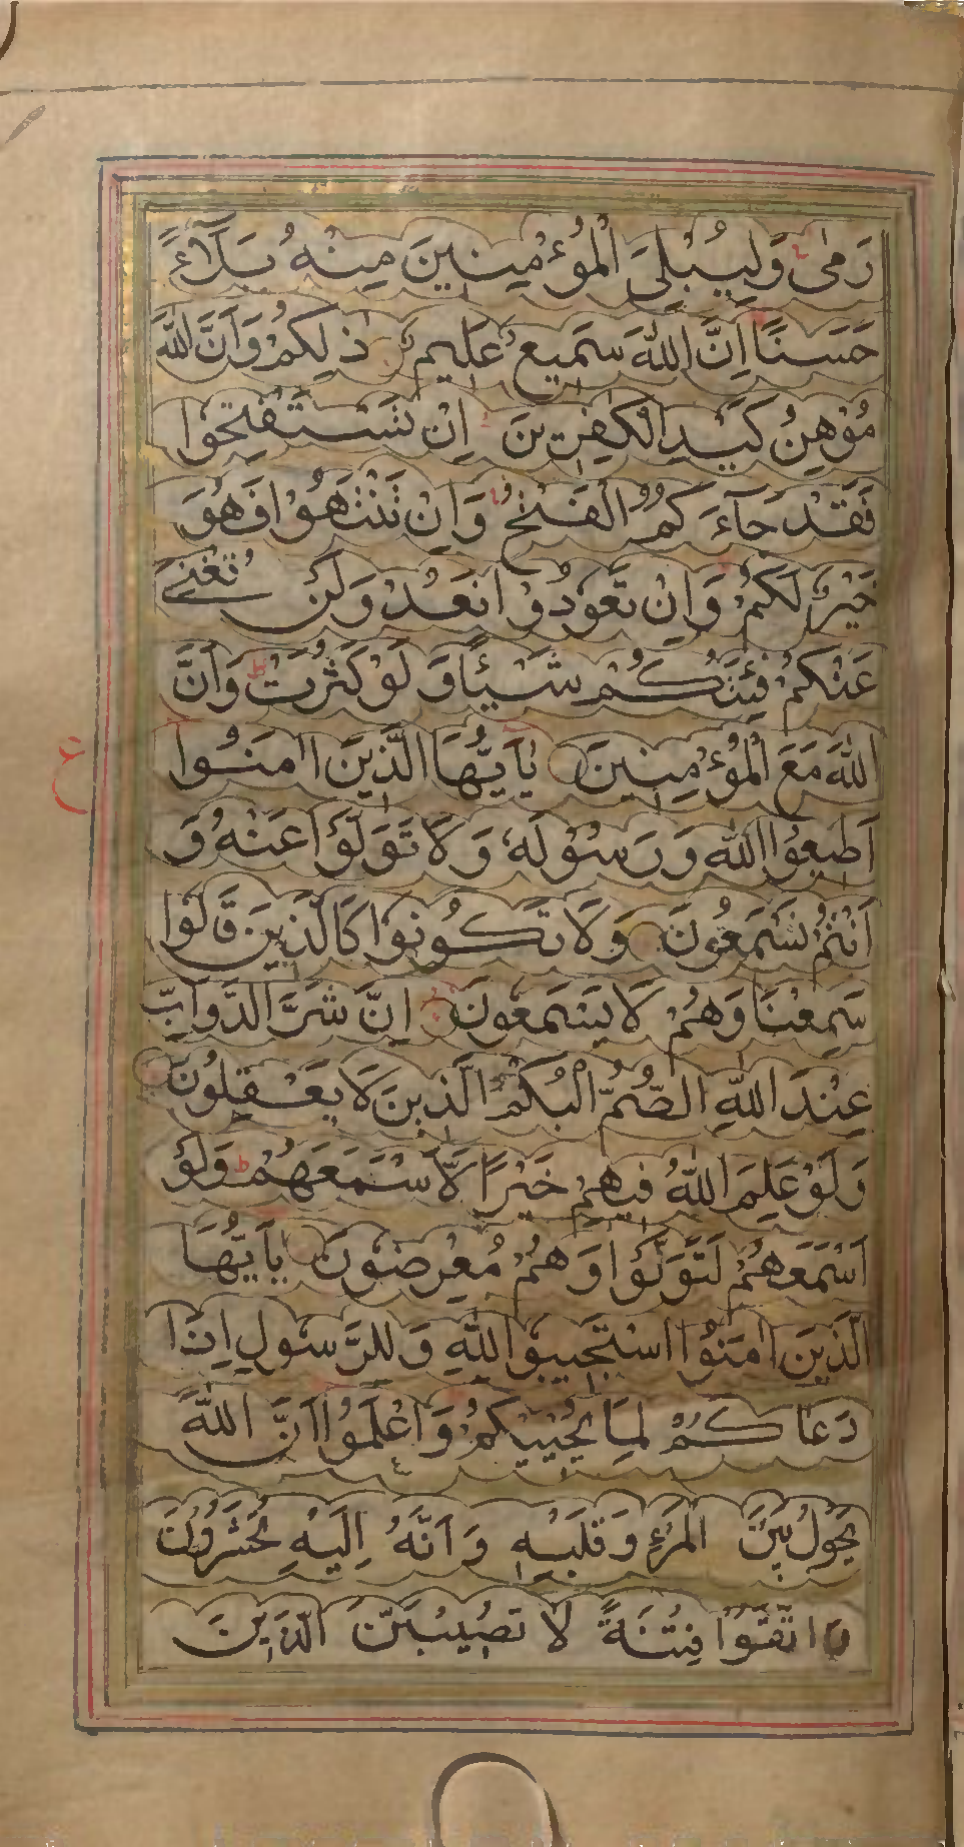 رَمٰى وَلِيُبْلِىَ الْمُؤْمِنِينَ مِنْهُ بَلَآءً
حَسَنًا اِنَّ اللّٰهَ سَمِيعٌ عَلِيمٌ ذٰلِكُمْ وَاَنَّ اللّٰهَ
مُوْهِنُ كَيْدِ الْكٰفِرِينَ اِنْ تَسْتَفْتِحُوا
فَقَدْ جَآءَكُمُ الْفَتْحُ وَاِنْ تَنْتَهُوْا فَهُوَ
خَيْرٌ لَكُمْ وَاِنْ تَعُودُوْا نَعُدْ وَلَنْ تُغْنِىَ
عَنْكُمْ فِئَتُكُمْ شَيْئًا وَ لَوْ كَثُرَتْ وَاَنَّ
اللّٰهَ مَعَ الْمُؤْمِنِينَ يٰاَيُّهَا الَّذِينَ اٰمَنُوا
اَطِيعُوا اللّٰهَ وَرَسُوْلَهُ وَلَا تَوَلَّوْا عَنْهُ وَ
اَنْتُمْ تَسْمَعُونَ وَلَا تَكُونُوا كَالَّذِينَ قَالُوا
سَمِعْنَا وَهُمْ لَا يَسْمَعُونَ اِنَّ شَرَّ الدَّوَآبِّ
عِنْدَ اللّٰهِ الصُّمُّ الْبُكْمُ الَّذِينَ لَا يَعْقِلُونَ
وَلَوْ عَلِمَ اللّٰهُ فِيهِمْ خَيْرًا لَّاَسْمَعَهُمْ وَلَوْ
اَسْمَعَهُمْ لَتَوَلَّوْا وَهُمْ مُعْرِضُونَ يٰاَيُّهَا
الَّذِينَ اٰمَنُوا اسْتَجِيبُوا لِلّٰهِ وَلِلرَّسُولِ اِذَا
دَعَاكُمْ لِمَا يُحْيِيكُمْ وَاعْلَمُوا اَنَّ اللّٰهَ
يَحُولُ بَيْنَ الْمَرْءِ وَقَلْبِهِ وَاَنَّهُ اِلَيْهِ تُحْشَرُونَ
وَاتَّقُوا فِتْنَةً لَا تُصِيبَنَّ الَّذِينَ